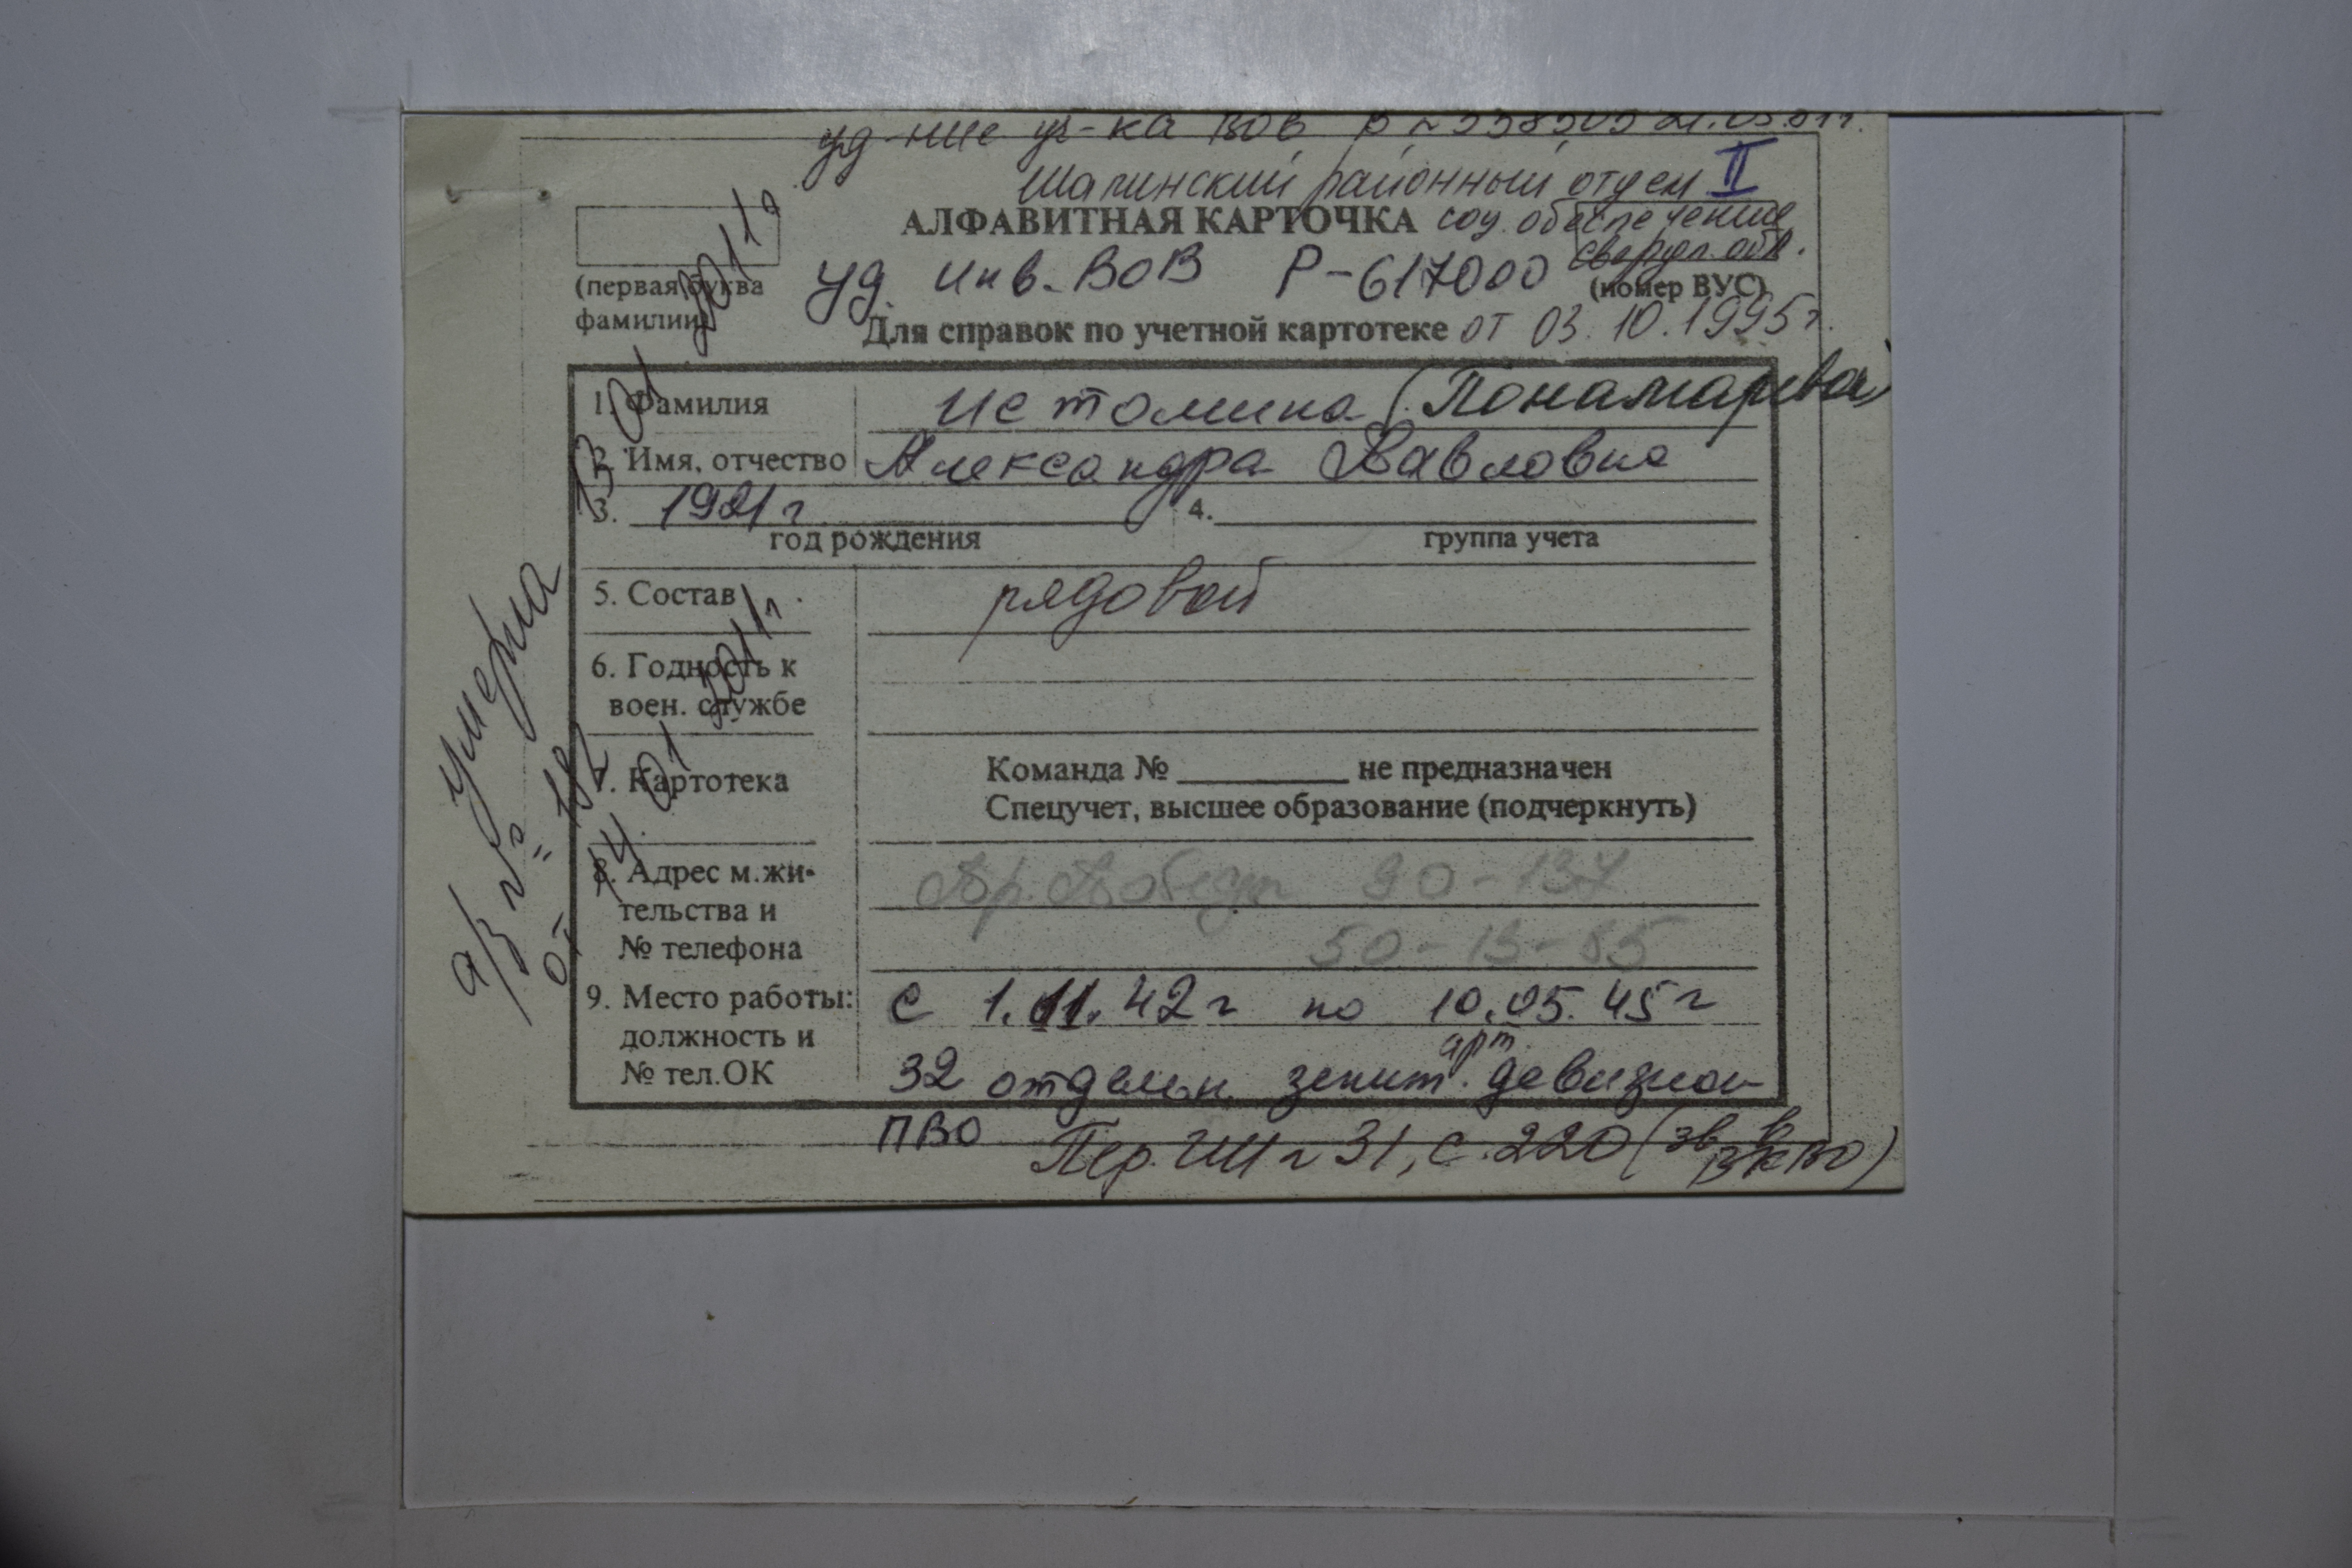 уд-ние уч-ка ВОВ Р №
Шалинский районный отдел II
АЛФАВИТНАЯ КАРТОЧКА соц. обеспечения
Свердл. обл.
(первая буква
фамилии)
уд. инв. ВОВ Р-617000
(номер ВУС)
Для справок по учетной картотеке от 03.10.1995 г.
1. Фамилия Истомина (Понамарева)
2. Имя, отчество Александра Павловна
3. 1921 г 4.
год рождения группа учета
5. Состав рядовой
6. Годность к
воен. службе
7. Картотека Команда № не предназначен
Спецучет, высшее образование (подчеркнуть)
8. Адрес м.жи-
тельства и
№ телефона
Пр. Победы 90-137
50-13-85
9. Место работы:
должность и
№ тел.ОК
с 1.11.42 г по 10.05.45 г
32 отдельн. зенит. арт. девизион
ПВО
Пер. ГШ № 31, с. 220 (
умерла 13 01 2011 г
а/з № 182
от 14. 01 2011 г.